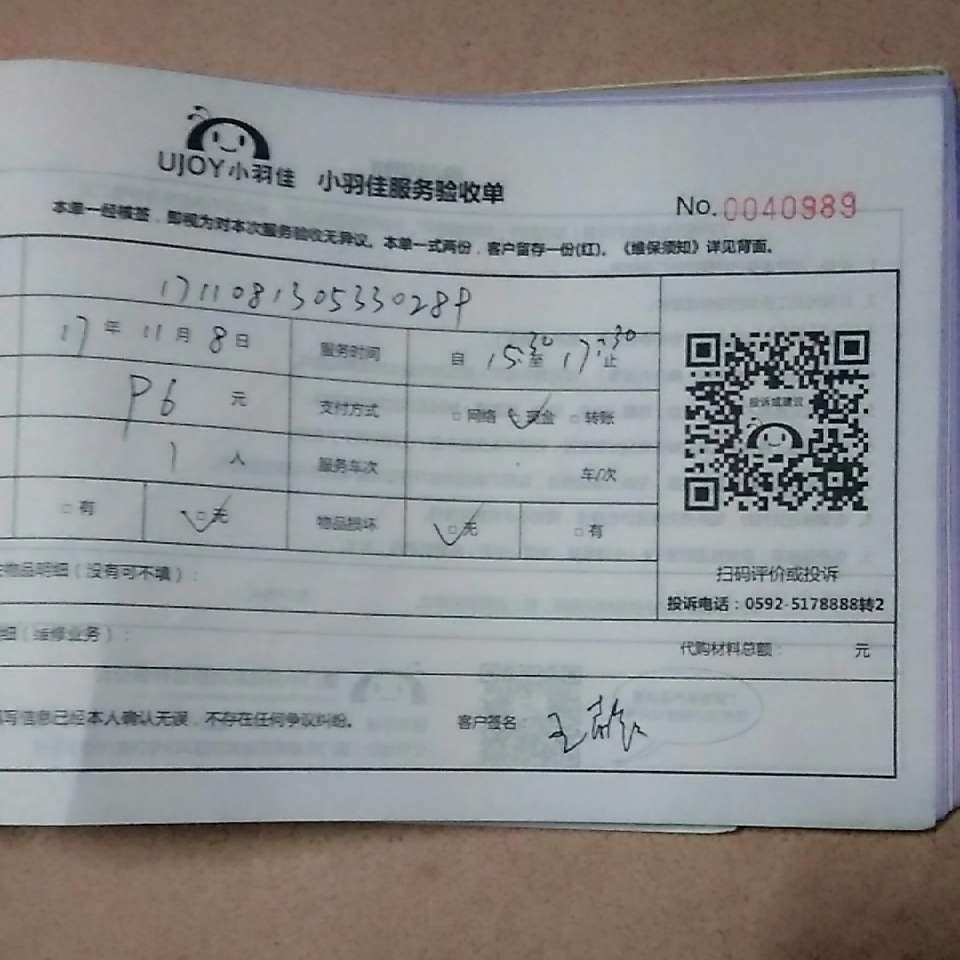 UJOY小羽佳 小羽佳服务验收单
No.0040989
本单一经核签，即视为对本次服务验收无异议。本单一式两份，客户留存一份(红)。《维保须知》详见背面。
1711081305330289
17年11月8日 服务时间 自15:30至17:30止
96元 支付方式 □网络 □现金 □转账
投诉或建议
1人 服务车次 车/次
□有 □无 物品损坏 □无 □有
扫码评价或投诉
物品明细（没有可不填）：
投诉电话：0592-5178888转2
细（维修业务）：
代购材料总额： 元
写信息已经本人确认无误，不存在任何争议纠纷。 客户签名： 王